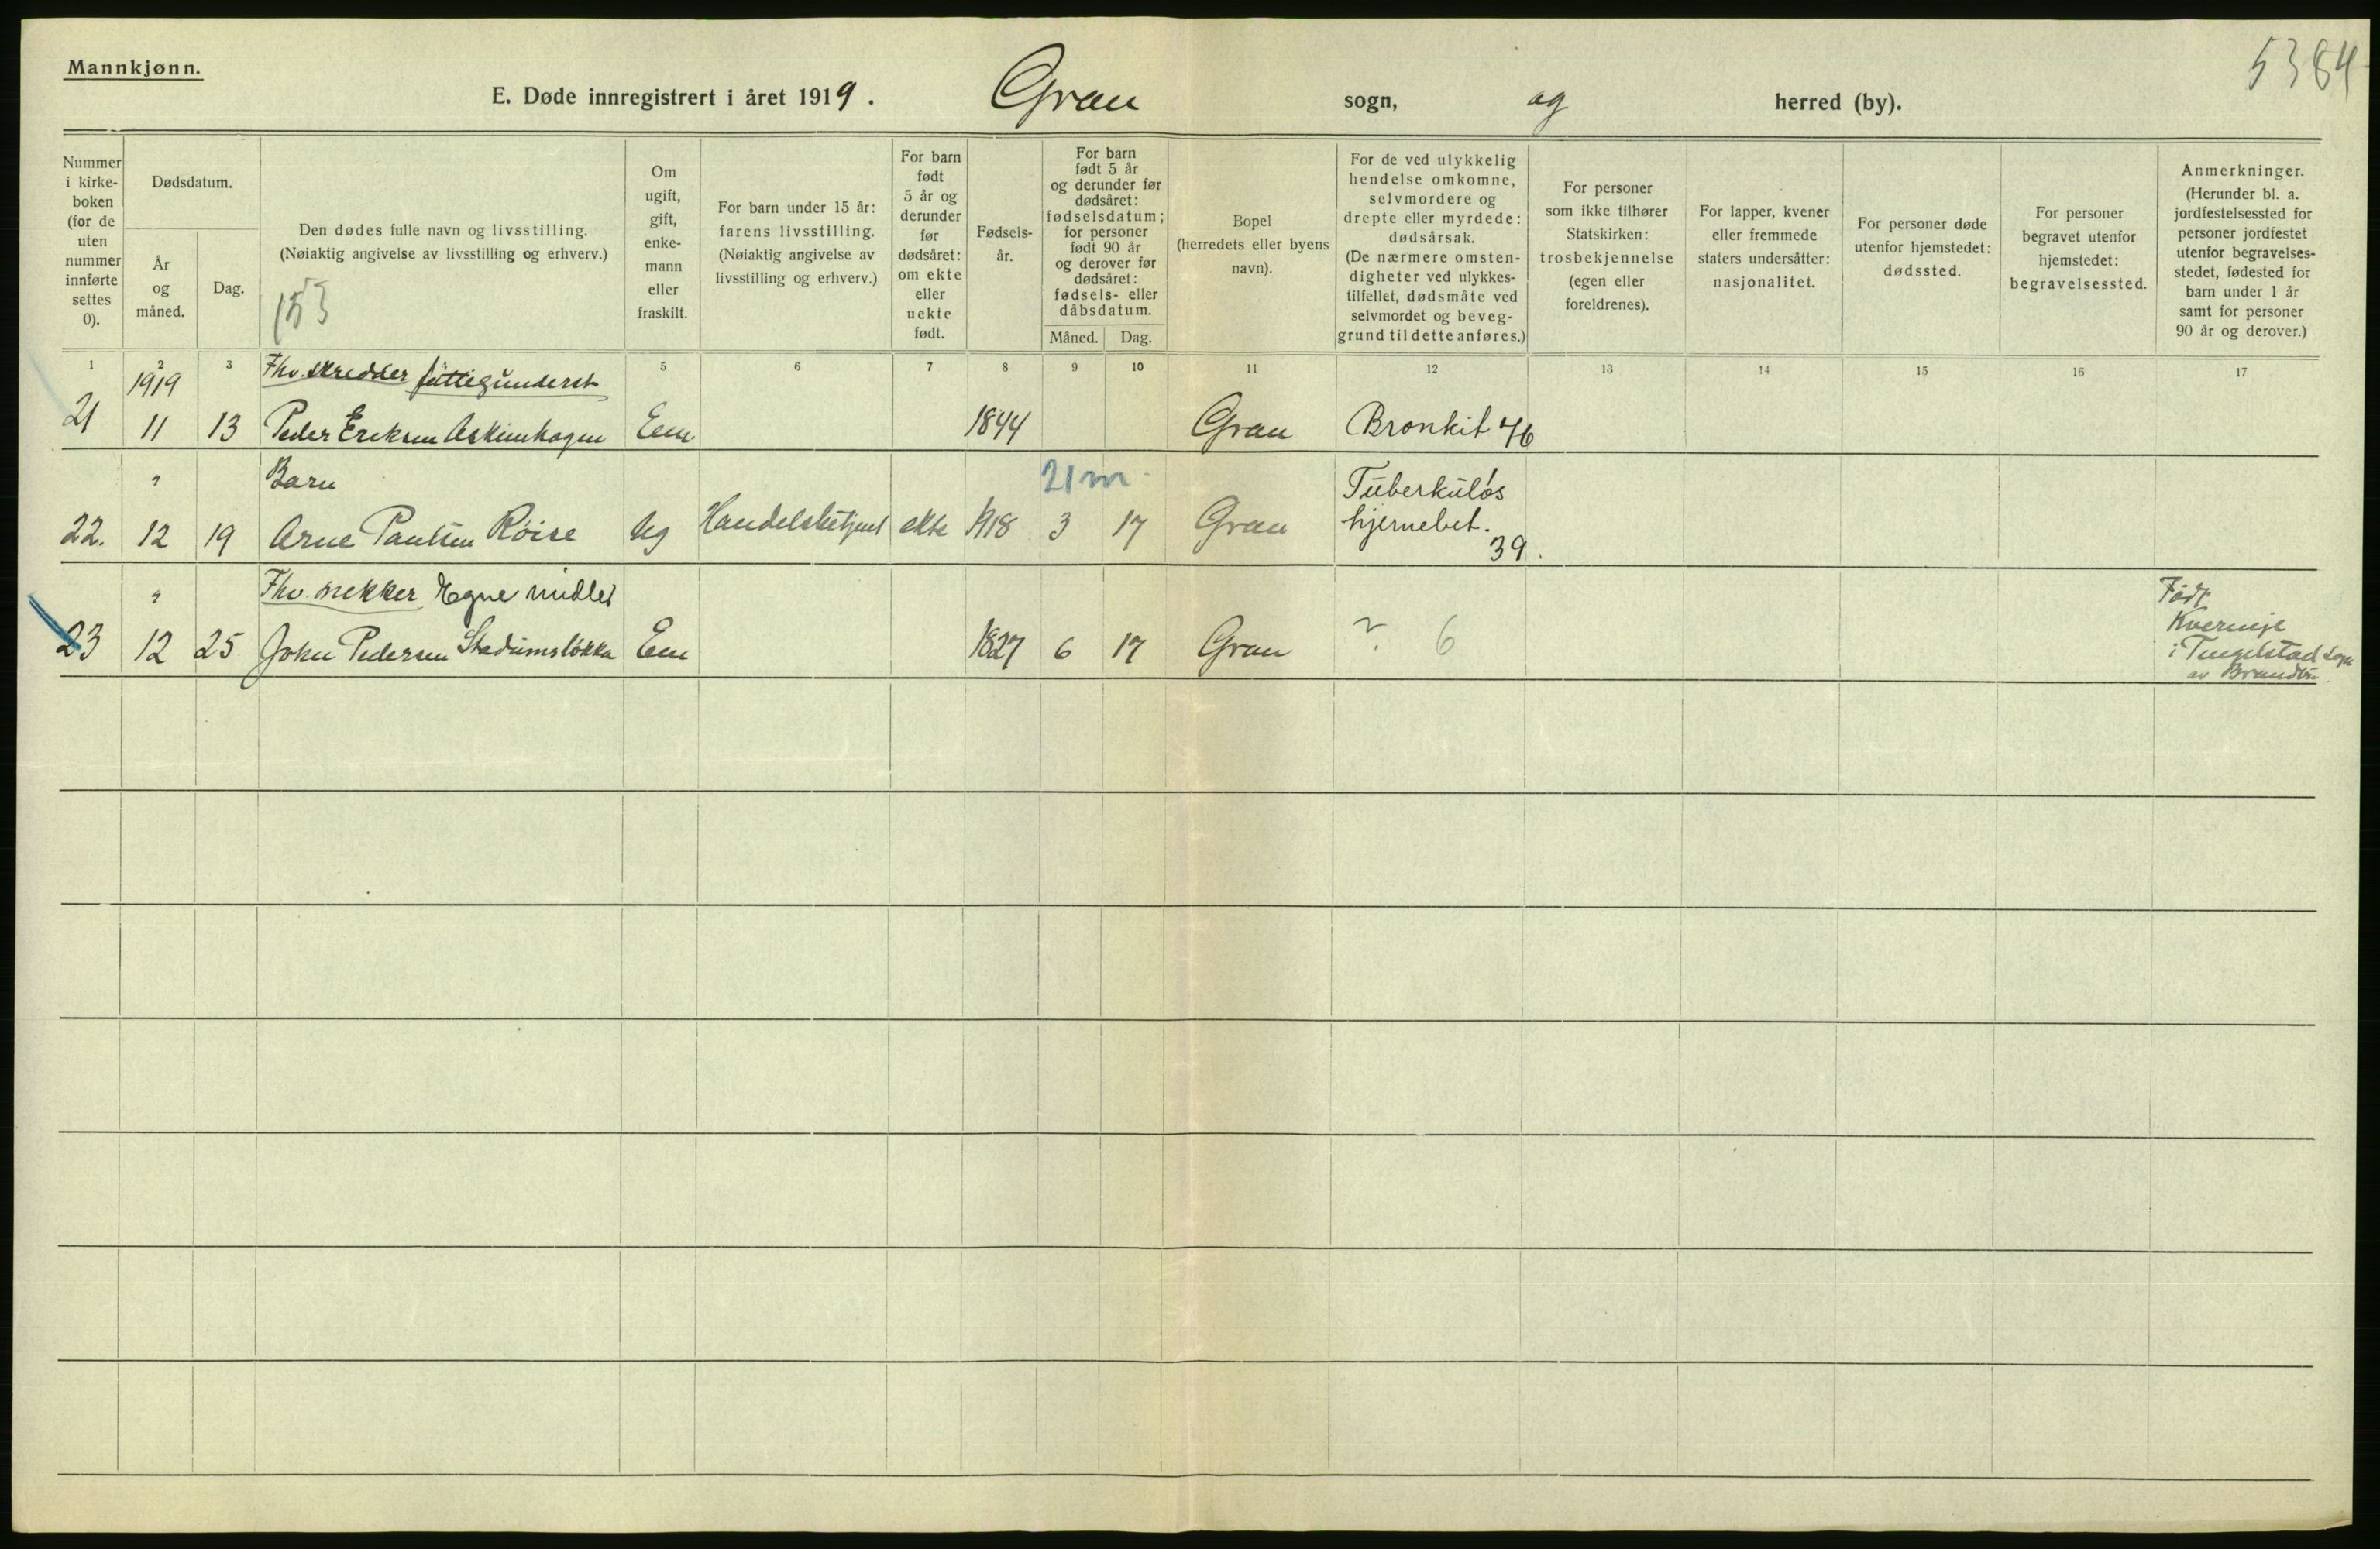 Mannkjønn.
5384
E. Døde innregistrert i året 1919. Gran sogn, og herred (by).
Nummer i kirke-boken (for de uten nummer innførte settes 0).
Dødsdatum.
År og måned.
Dag.
Den dødes fulle navn og livsstilling.
(Nøiaktig angivelse av livsstilling og erhverv.)
153
Om ugift, gift, enke-mann eller fraskilt.
For barn under 15 år: farens livsstilling. (Nøiaktig angivelse av livsstilling og erhverv.)
For barn født 5 år og derunder før dødsåret: om ekte eller uekte født.
Fødsels-år.
For barn født 5 år og derunder før dødsåret: fødselsdatum; for personer født 90 år og derover før dødsåret: fødsels- eller dåbsdatum.
Måned. Dag.
Bopel (herredets eller byens navn).
For de ved ulykkelig hendelse omkomne, selvmordere og drepte eller myrdede: dødsårsak. (De nærmere omsten-digheter ved ulykkes-tilfellet, dødsmåte ved selvmordet og beveg-grund til dette anføres.)
For personer som ikke tilhører Statskirken: trosbekjennelse (egen eller foreldrenes).
For lapper, kvener eller fremmede staters undersåtter: nasjonalitet.
For personer døde utenfor hjemstedet: dødssted.
For personer begravet utenfor hjemstedet: begravelsessted.
Anmerkninger. (Herunder bl. a. jordfestelsessted for personer jordfestet utenfor begravelses-stedet, fødested for barn under 1 år samt for personer 90 år og derover.)
1 2 3 5 6 7 8 9 10 11 12 13 14 15 16 17
1919 Fhv. skredder fattigunderst
21 11 13 Peder Eriksen Askimhagen Em. 1844 Gran Bronkit 46
" Barn 21 m Tuberkuløs
22. 12 19 Arne Paulsen Røise Ug Handelsbetjent ekte 1918 3 17 Gran hjernebet.
39.
" Fhv. snekker Egne midler Født
23 12 25 John Pedersen Stadumsløkka Em 1827 6 17 Gran ? 6
i Tingelstad sogn
av Brandbu